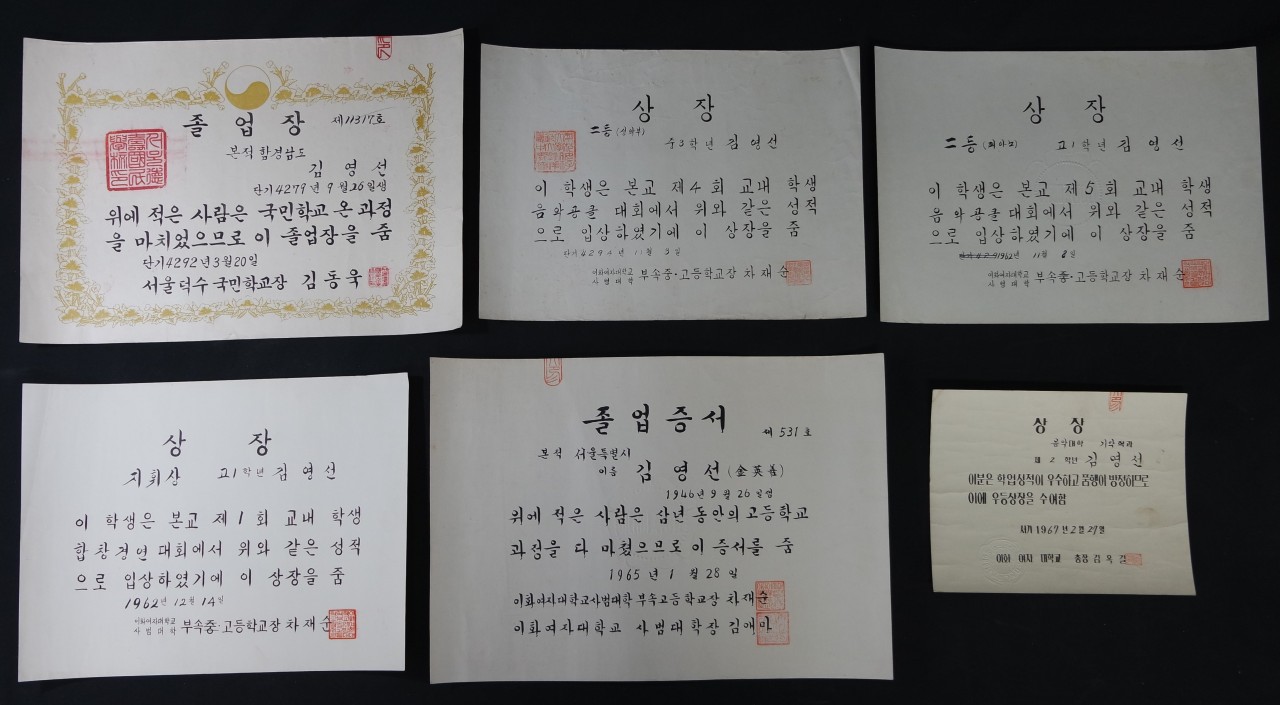 졸 업 장
제11317호
본적 함경남도
김 영 선
단기4279년 9월26일생
위에 적은 사람은 국민학교 온 과정
을 마치었으므로 이 졸업장을 줌
단기4292년3월20일
서울덕수 국민학교장 김동욱
상 장
二등 (성악부)
중3학년 김영선
이 학생은 본교 제4회 교내 학생
음악콩쿨 대회에서 위와 같은 성적
으로 입상하였기에 이 상장을 줌
단기4294년 11월
이화여자대학교
사범대학
부속중·고등학교장 차재순
상 장
二등 (피아노) 고1학년 김영선
이 학생은 본교 제5회 교내 학생
음악콩쿨 대회에서 위와 같은 성적
으로 입상하였기에 이 상장을 줌
1962년 11월 8일
이화여자대학교
사범대학
부속중·고등학교장 차재순
상 장
지휘상 고1학년 김영선
이 학생은 본교 제1회 교내 학생
합창경연대회에서 위와 같은 성적
으로 입상하였기에 이 상장을 줌
1962년 12월 14일
이화여자대학교
사범대학
부속중·고등학교장 차재순
졸업증서
제 531 호
본적 서울특별시
이름 김영선 (金英善)
1946년 9월 26일생
위에 적은 사람은 삼년 동안의 고등학교
과정을 다 마쳤으므로 이 증서를 줌
1965년 1월 28일
이화여자대학교사범대학 부속고등학교장 차재순
이화여자대학교 사범대학장 김애마
상 장
음악대학 기악학과
제 2 학년 김영선
이분은 학업성적이 우수하고 품행이 방정하므로
이에 우등상장을 수여함
서기 1967년 2월 27일
이화 여자 대학교 총장 김옥길